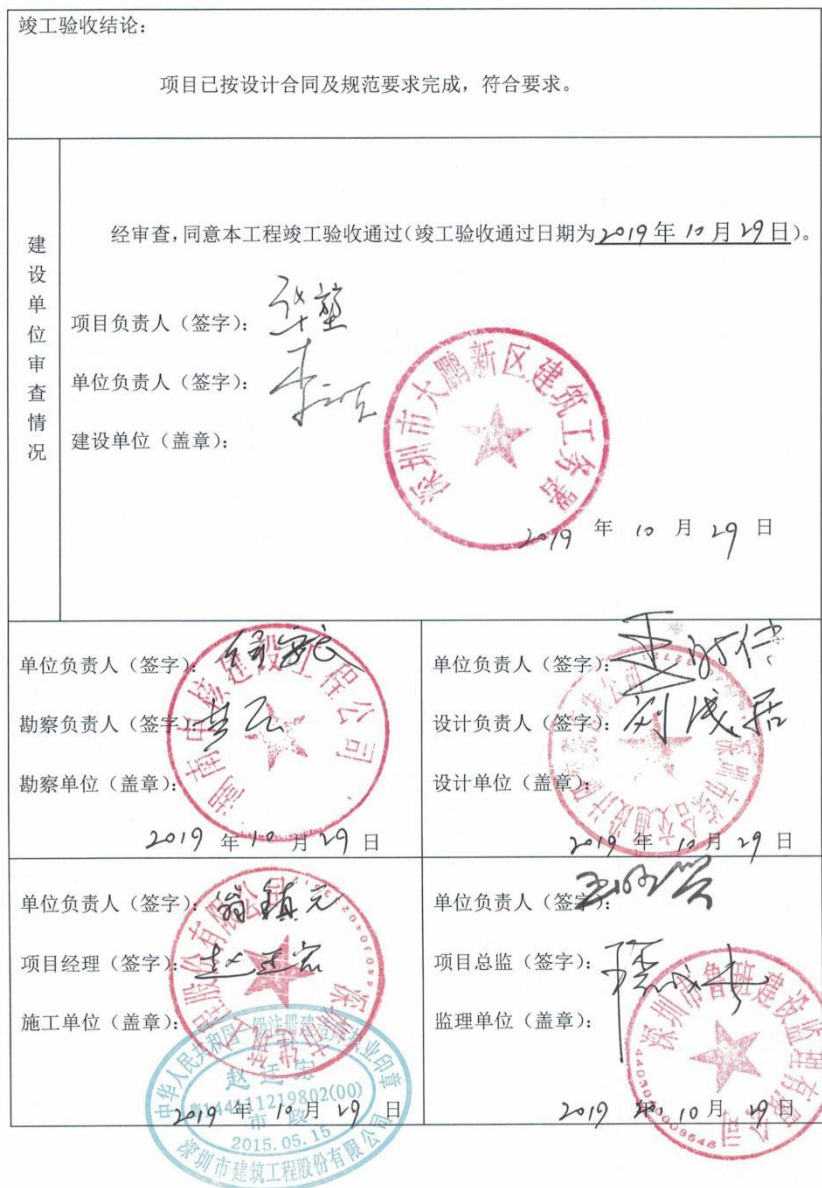 竣工验收结论：
项目已按设计合同及规范要求完成，符合要求。
建设单位审查情况
经审查，同意本工程竣工验收通过（竣工验收通过日期为2019年10月29日）。
项目负责人（签字）：
单位负责人（签字）：
建设单位（盖章）：
深圳市大鹏新区建筑工务署
2019 年 10 月 29 日
单位负责人（签字）：
勘察负责人（签字）：
勘察单位（盖章）：
湖南中核建设工程公司
2019 年 10 月 29 日
单位负责人（签字）：
设计负责人（签字）：刘成居
设计单位（盖章）：
2019 年 10 月 29 日
单位负责人（签字）：翁镇元
项目经理（签字）：赵廷宏
施工单位（盖章）：
中华人民共和国一级注册建造师执业印章
赵廷宏
粤144111219802(00)
市政
2015.05.15
深圳市建筑工程股份有限公司
2019 年 10 月 29 日
单位负责人（签字）：
项目总监（签字）：
监理单位（盖章）：
深圳市鲁班建设监理有限公司
2019 年 10 月 29 日